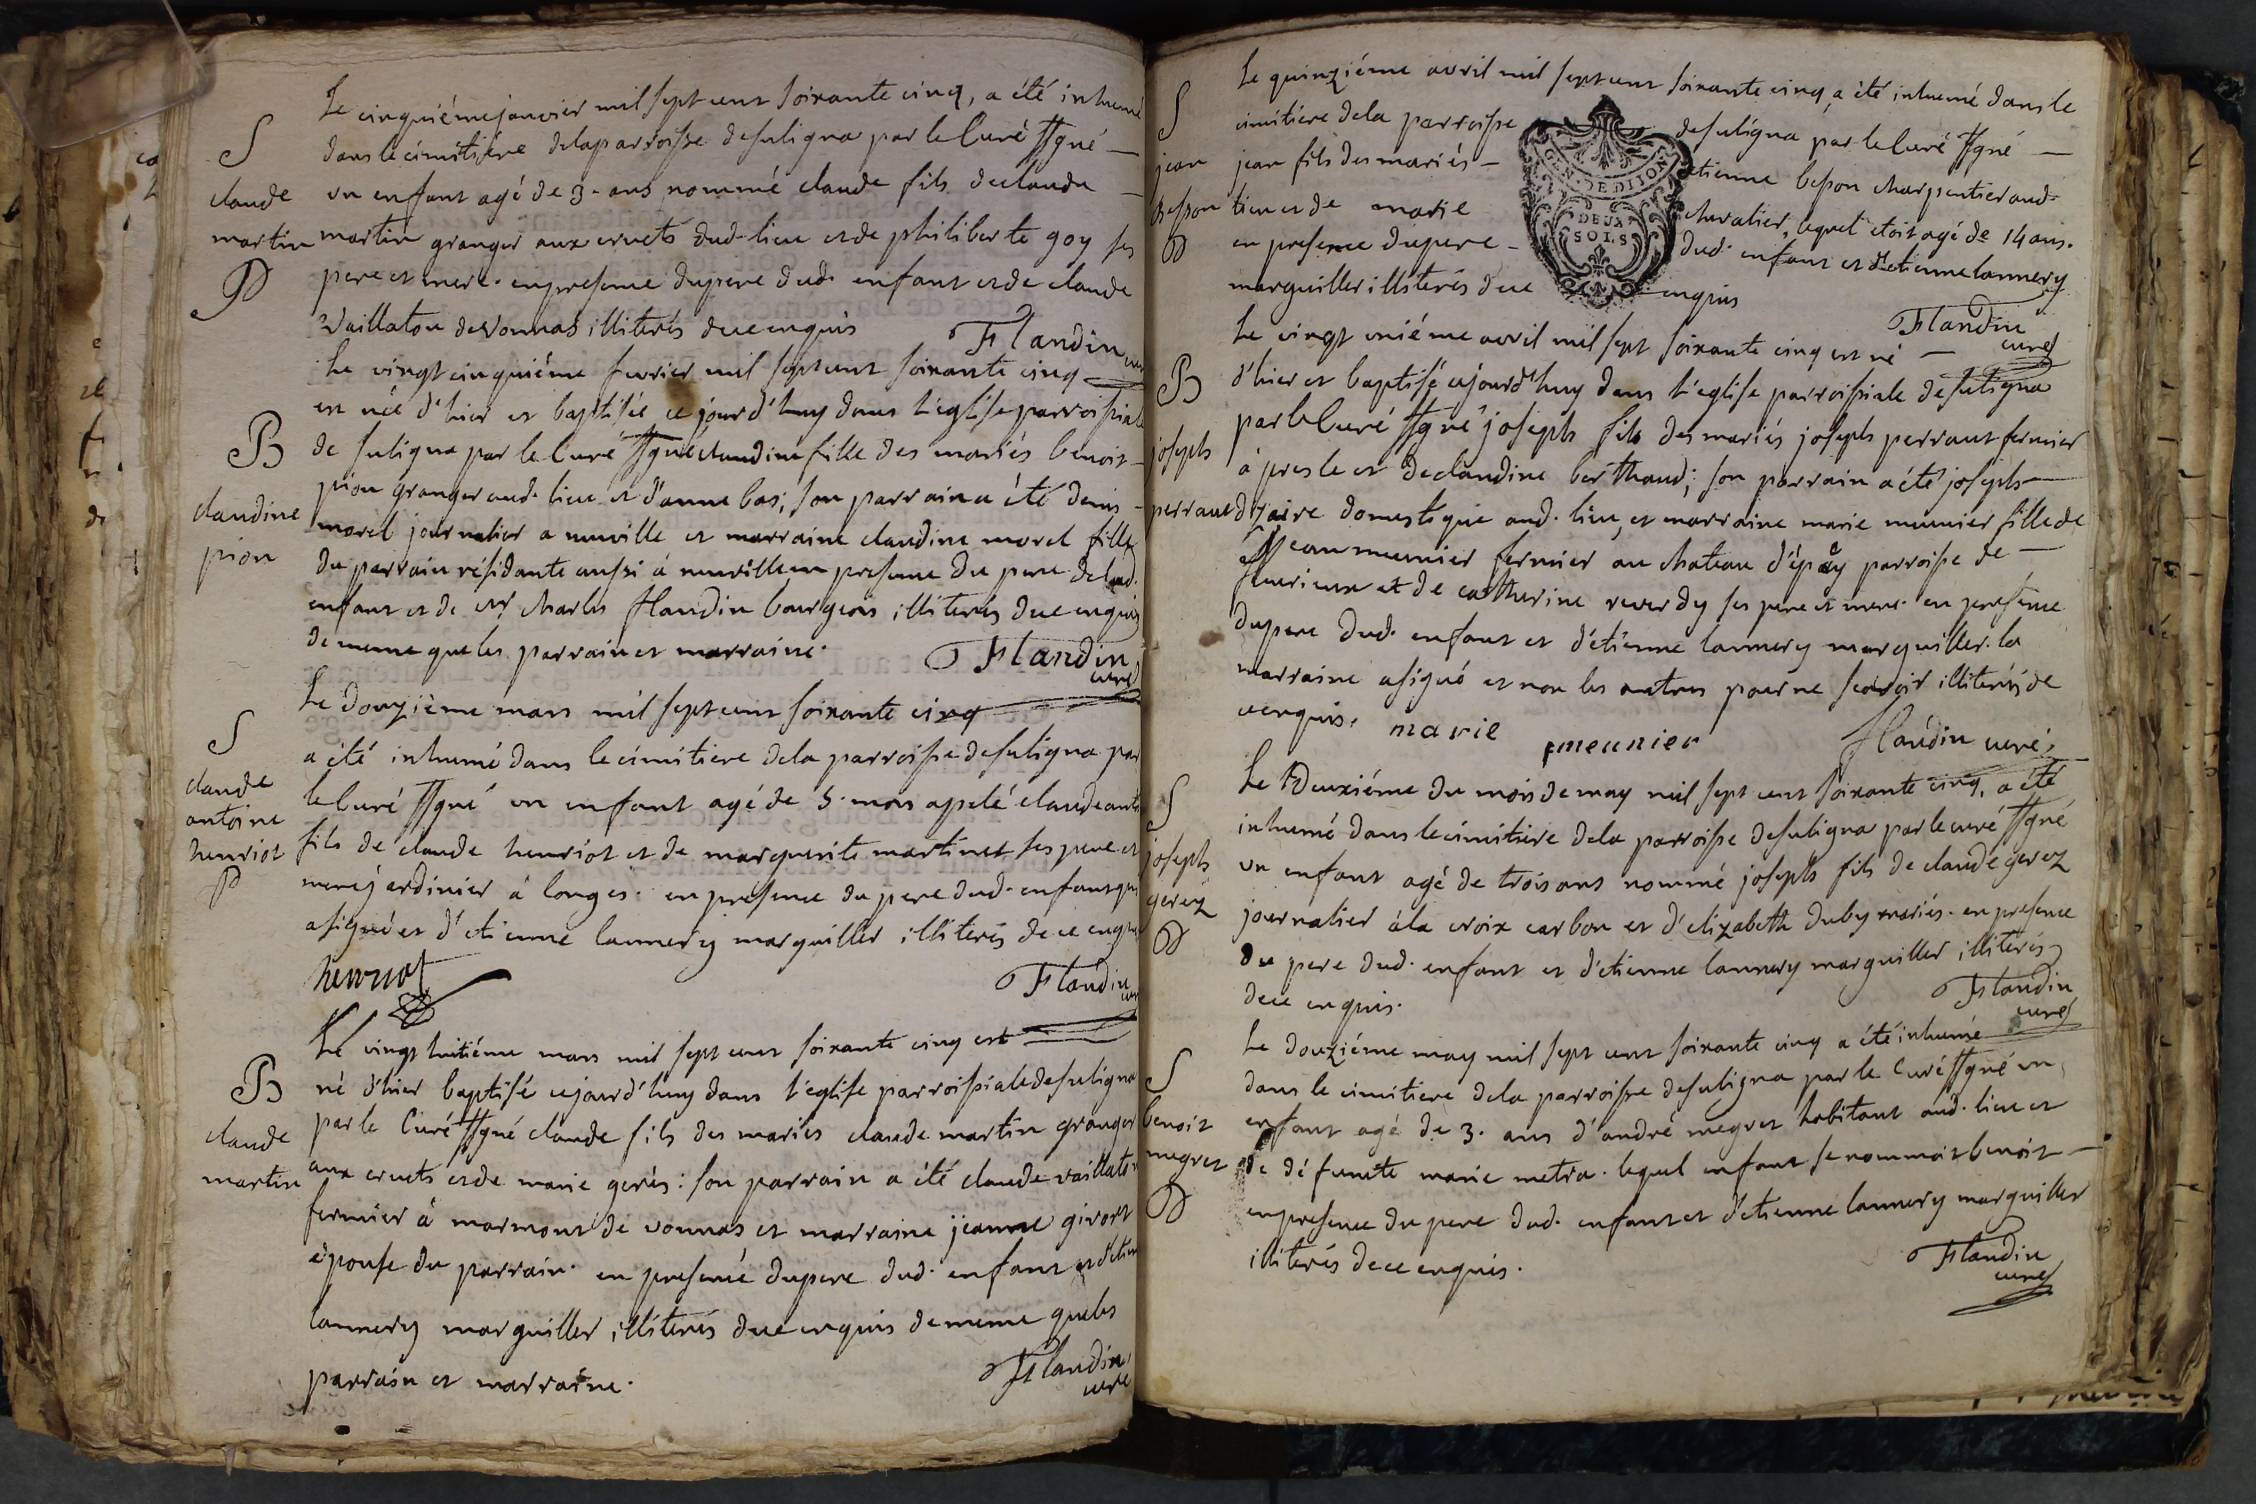 Le cinquiéme janvier mil sept cent soixante cinq, a été inhumé
dans le cimitiére de la parroisse de suligna par le Curé ssgné
S
claude
martin
P
un enfant agé de 3. ans nommé claude fils de claude
martin granger aux cruets dud. lieu et de philiberte goy ses
pere et mere. en presence du pere dud. enfant et de claude
Vaillaton de Vonnas illiterés de ce enquis
Flandin curé
Le vingt cinquiéme fevrier mil sept cent soixante cinq
est née d'hier et baptisée ce jourd'huy dans l'église parroissiale
B
claudine
pion
de suligna par le Curé ssgné claudine fille des mariés benoit
pion granger aud. lieu et d'anne bas; son parrain a été denis
morel journalier a neuville et marraine claudine morel fille
du parrain résidante aussi à neuville en presence du pere de lad.
enfant et de mr charles flandin bourgeois illiterés de ce enquis
de meme que les parrain et marraine.
Flandin curé
Le douziéme mars mil sept cent soixante cinq
S
claude
antoine
henriot
P
a été inhumé dans le cimitiere de la parroisse de suligna par
le Curé ssgné un enfant agé de 5. mois apelé claude
fils de claude henriot et de marguerite martinet ses pere et
mere jardinier à longes. en presence du pere dud. enfant qui
a signé et d'etienne lannery marguiller illiterés de ce enquis
henriot
Flandin curé
Le vingt huitiéme mars mil sept cent soixante cinq est
B
claude
martin
né d'hier baptisé cejourd'huy dans l'église parroissiale de suligna
par le Curé ssgné claude fils des mariés claude martin granger
aux cruets et de marie gerés: son parrain a été claude vaillaton
fermier à marmont de vonnas et marraine jeanne givort
épouse du parrain. en presence du pere dud. enfant et
lannery marguiller illiterés de ce enquis de meme que les
parrain et marraine.
Flandin
curé
Le quinziéme avril mil sept cent soixante cinq a été inhumé dans le
S
jean
besson
P
cimitiere de la parroisse de suligna par le Curé ssgné
jean fils des mariés etienne besson charpentier aud.
lieu et de marie chevalier, lequel étoit agé de 14 ans.
en presence du pere dud. enfant et d'etienne lannery
marguiller illiterés de ce enquis
GEN. DE DIJON
DEUX
SOLS
Flandin
curé
Le vingt uniéme avril mil sept soixante cinq est né
B
joseph
perraud
d'hier et baptisé cejourd'huy dans l'église parroissiale de suligna
par le Curé ssgné joseph fils des mariés joseph perraut fermier
à presle et de claudine berthaud; son parrain a été joseph
dizaire domestique aud. lieu, et marraine marie meunier fille de
jean meunier fermier au chateau d'épey parroisse de
fleurieux et de catherine reverdy ses pere et mere. en presence
du pere dud. enfant et d'étienne lannery marguiller. la
marraine a signé et non les autres pour ne sçavoir illiterés de
ce enquis.
marie meunier
flandin curé
Le Deuxiéme du mois de may mil sept cent soixante cinq, a été
S
joseph
gerez
P
inhumé dans le cimitiere de la parroisse de suligna par le curé ssgné
un enfant agé de trois ans nommé joseph fils de claude gerez
journalier à la croix carbon et d'elizabeth duby mariés. en presence
du pere dud. enfant et d'etienne lannery marguiller illiterés
de ce enquis.
Flandin
curé
Le douziéme may mil sept cent soixante cinq a été inhumé
S
benoit
megret
P
dans le cimitiere de la parroisse de suligna par le Curé ssgné un
enfant agé de 3. ans d'andré megret habitant aud. lieu et
de défunte marie metra. lequel enfant se nommoit benoit
en presence du pere dud. enfant et d'etienne lannery marguiller
illiterés de ce enquis.
Flandin
curé